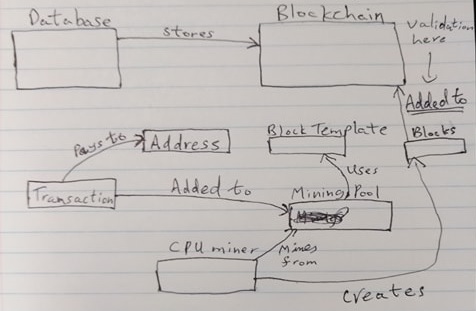 Database
Blockchain
stores
validation
here
Added to
Blocks
Pays to
Address
Block Template
Uses
Transaction
Added to
Mining Pool
CPU miner
Mines
from
Creates